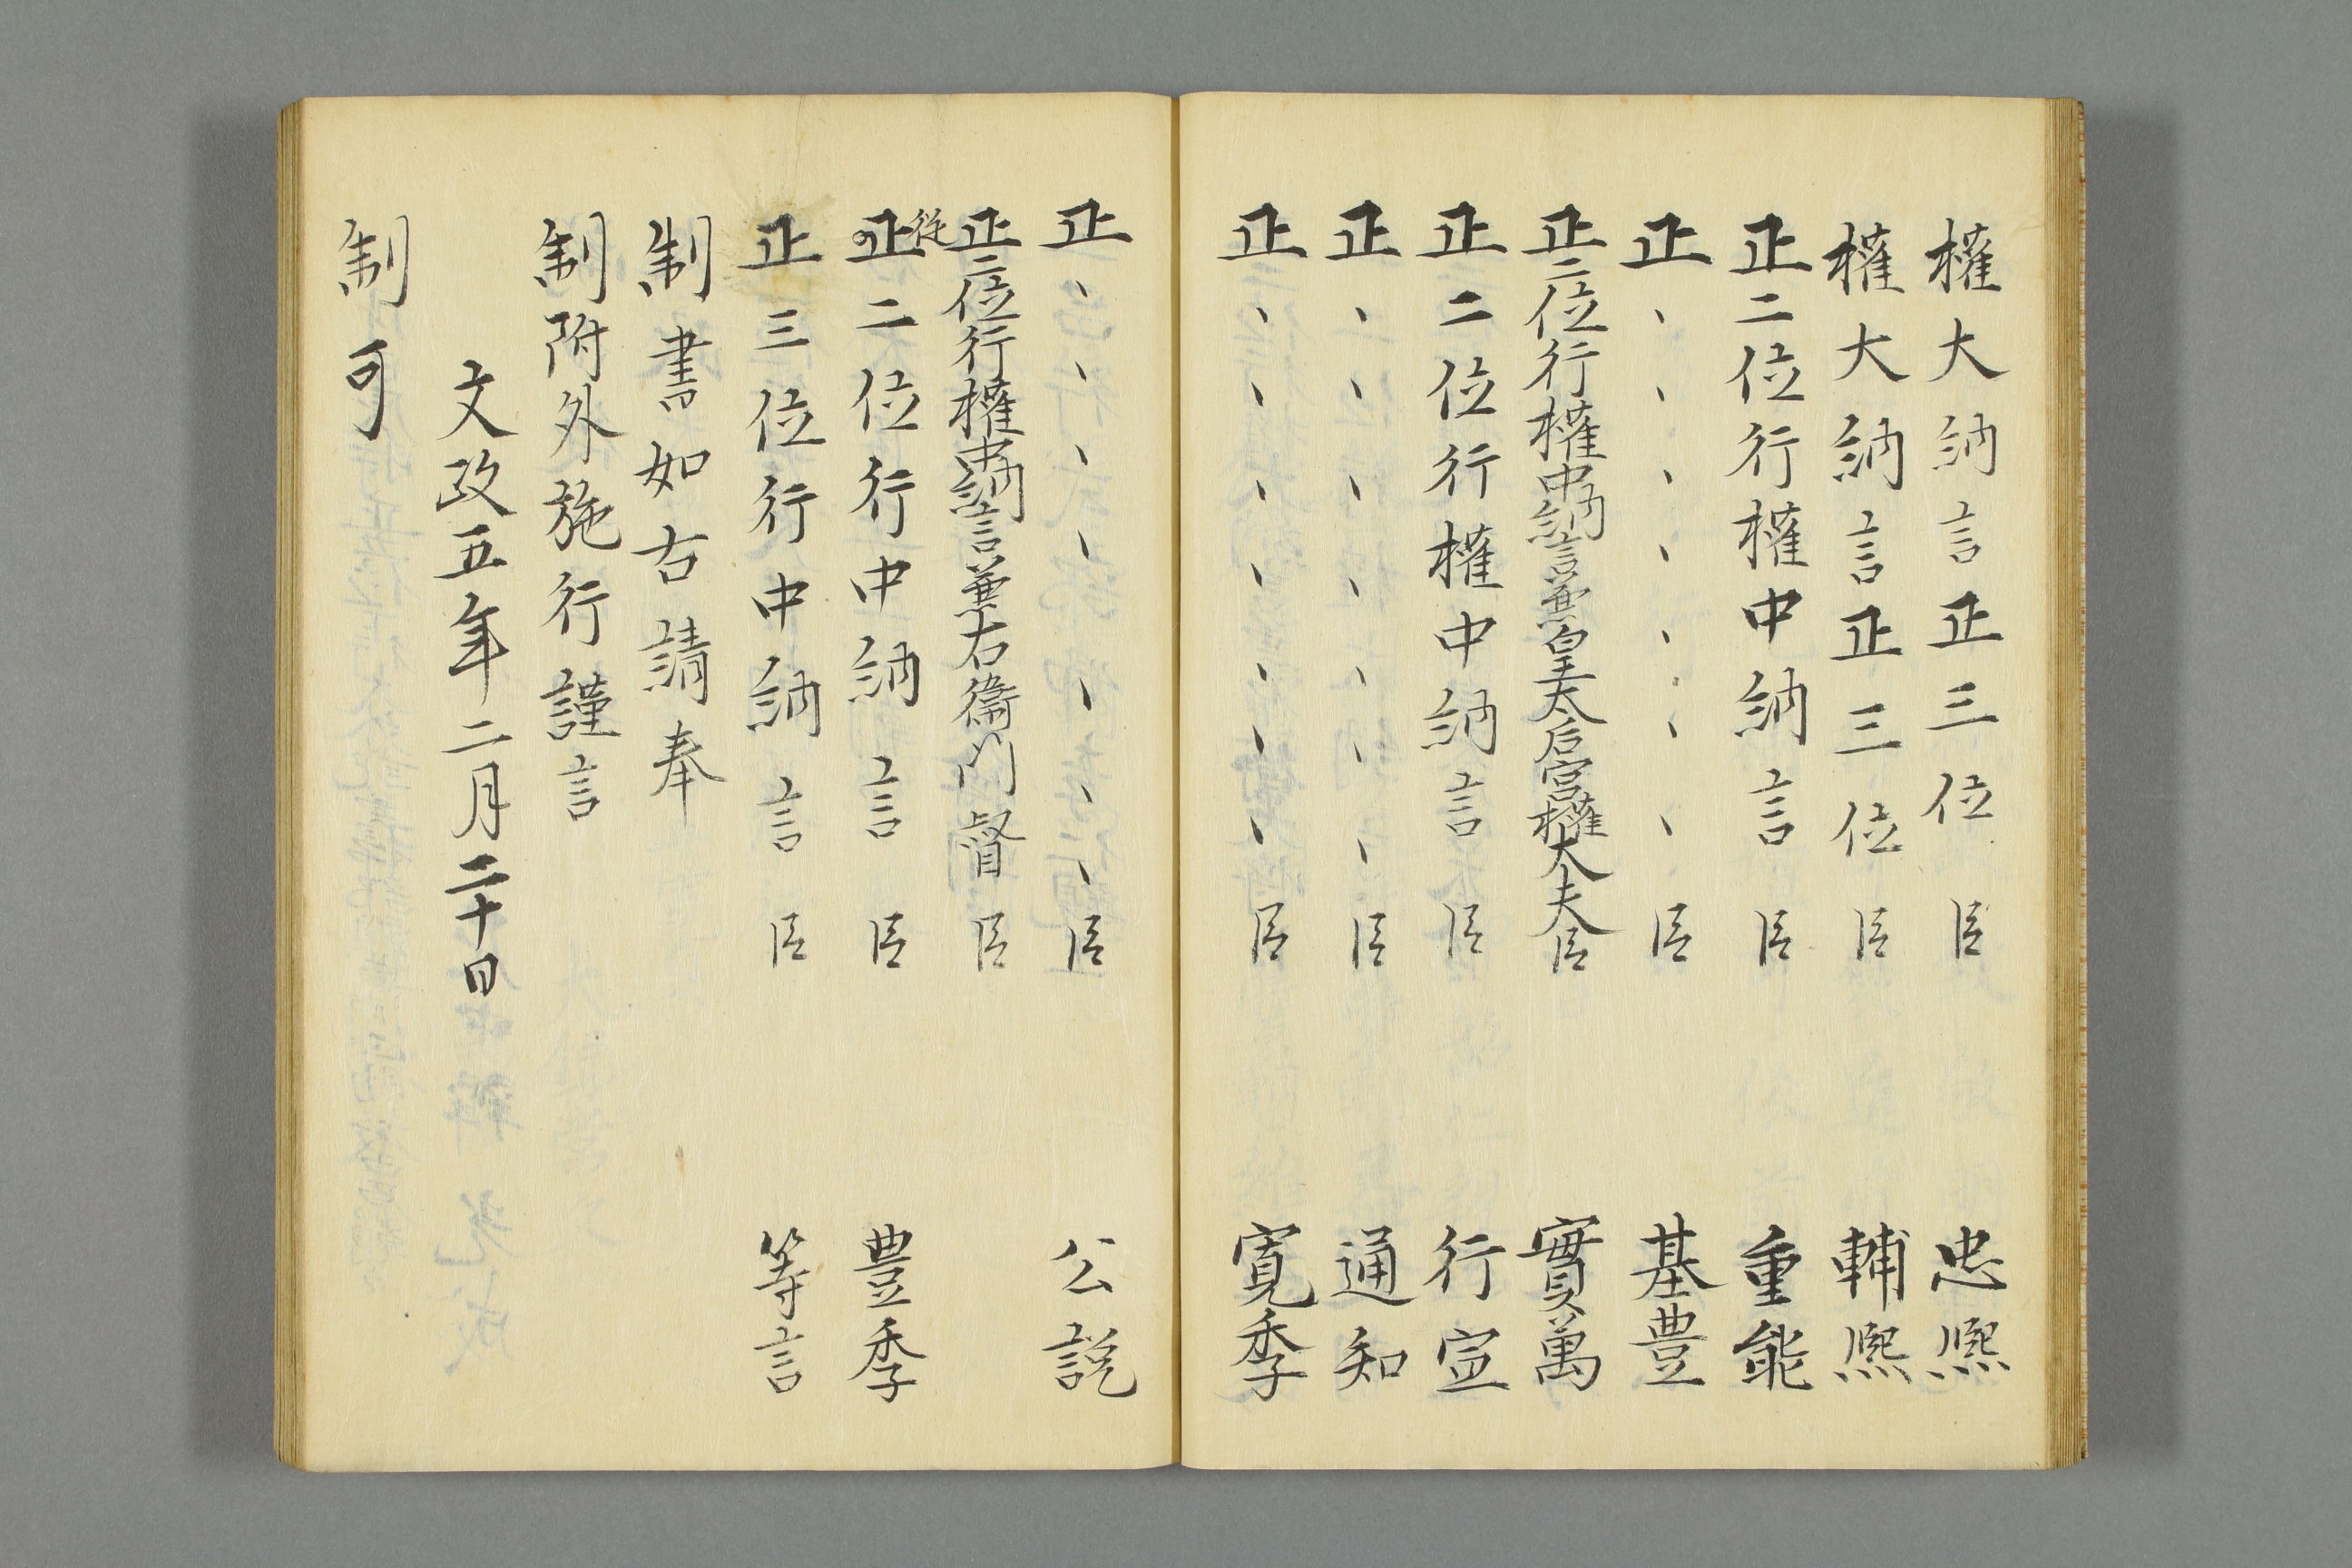 權大納言正三位臣 忠熈
權大納言正三位臣 輔熈
正二位行權中納言臣 重能
正、、、、、、、臣 基豊
正二位行權中納言兼皇太后宮權大夫臣 實萬
正二位行權中納言臣 行宣
正、、、、、、、臣 通知
正、、、、、、、臣 寛季
正、、、、、、、臣 公説
正二位行權中納言兼右衛門督臣
從
正二位行中納言臣 豊季
正三位行中納言臣 等言
制書如右請奉
制附外施行謹言
文政五年二月二十日
制可